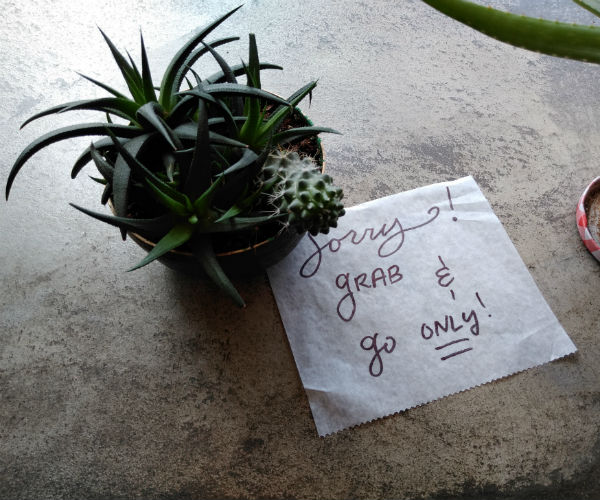 Sorry!
GRAB &
go ONLY!